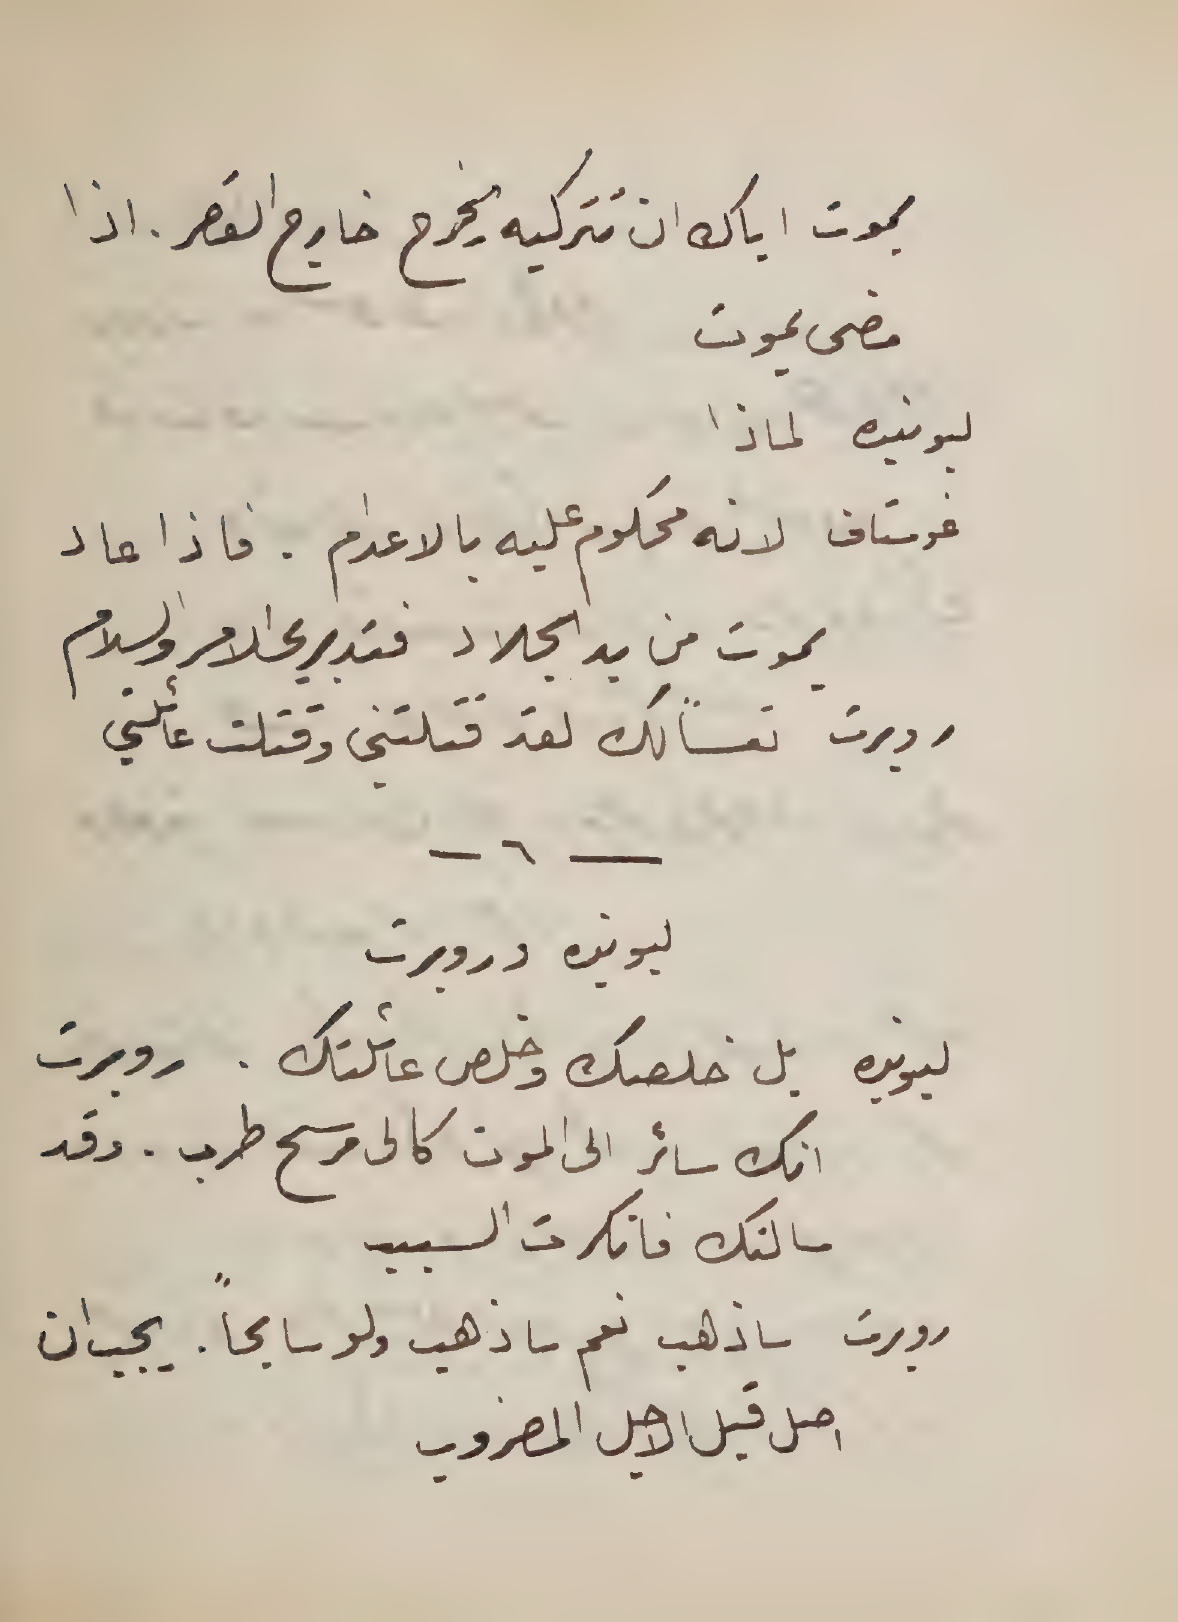 يموت اياك ان تتركيه يخرج خارج القصر . اذا
مضى يموت
ليونيده لماذا
غوستاف لانه محكوم عليه بالاعدام . فاذا عاد
يموت من يد الجلاد فتدبري الامر والسلام
روبرت تعساً لك لقد قتلتني وقتلت عائلتي
— ٦ —
ليونيده وروبرت
ليونيده بل خلصتك وخلص عائلتك . روبرت
انك سائر الى الموت كالى مرسح طرب . وقد
سالتك فانكرت السبب
روبرت ساذهب نعم ساذهب ولو سابحاً . يجب ان
اصل قبل الاجل المضروب